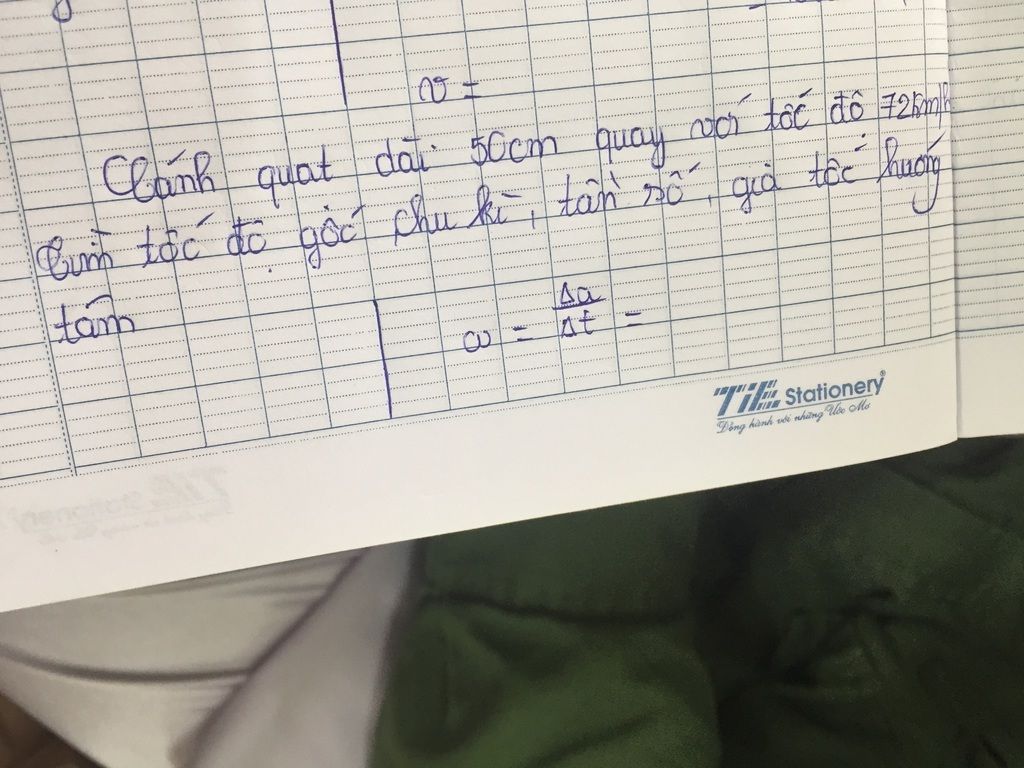 v =
Cánh quạt dài 50cm quay với tốc độ 72km/h
tìm tốc độ góc chu kì, tần số, gia tốc hướng
tâm
ω = Δα/Δt =
TiE Stationery®
Đồng hành với những Ước Mơ